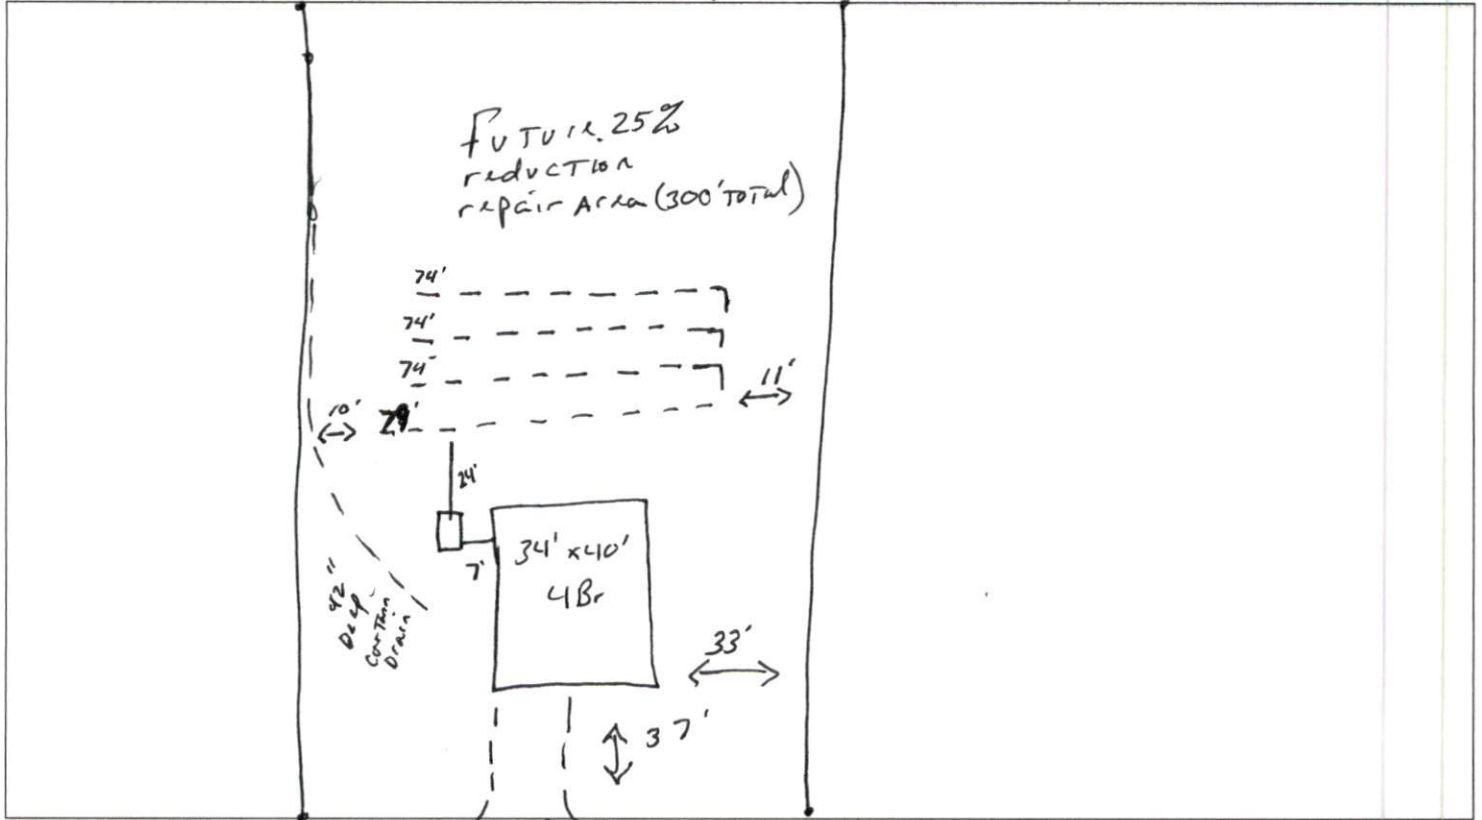 Future 25%
reduction
repair Area (300' Total)
74'
74'
74'
11'
10'
24'
34' x 40'
4 Br
7'
42"
Deep
Curtain
Drain
33'
37'